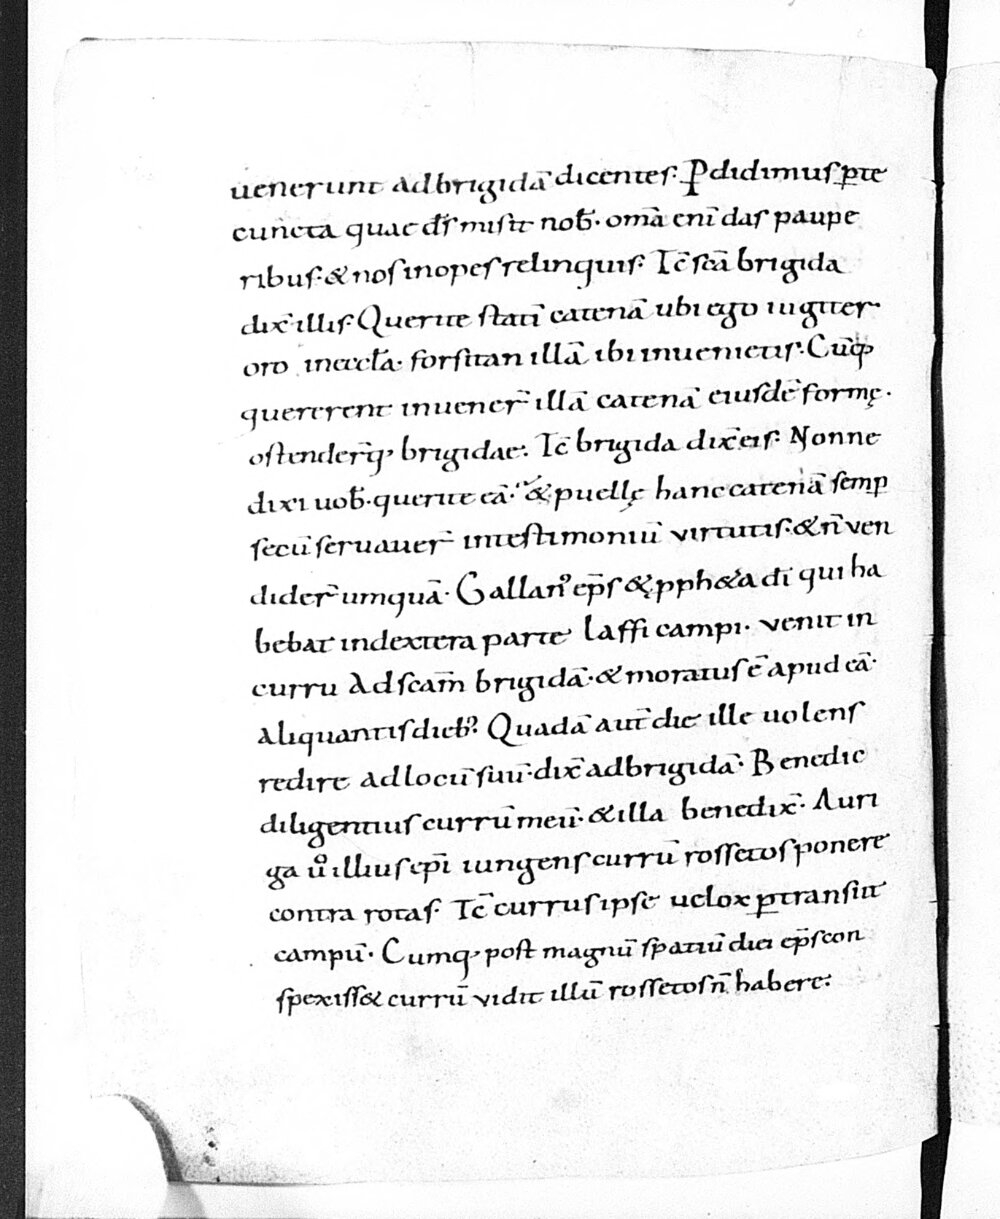 uenerunt adbrigidā dicentes. P̲didimus p̲te
cuncta quae d̅s misit nob̅. om̅a eni̅ das paupe
ribus. & nos inopes relinquis. Tc̅ sc̅a brigida
dix̅ illis. Querite stati̅ catenā ubi ego iugiter.
oro ineccl̅a. forsitan illā ibi inuenietis. Cu̅q;
quererent inuener̅ illā catenā eiusde̅ formę.
ostender̅q; brigidae. Tc̅ brigida dix̅ eis. Nonne
dixi uob̅. querite eā. & puellę hanc catenā semp̲
secū seruauer̅ intestimoniū virtutis. & n̅ ven
dider̅ umquā. Gallanꝰ ep̅s & pph&a di̅ qui ha
bebat indextera parte laffi campi. venit in
curru Ad scam̅ brigidā. & moratus e̅ apud eā.
aliquantis dieb; Quadā aut̅ die ille uolens
redire adlocū suū. dix̅ adbrigidā. Benedic
diligentius currū meū. & illa benedix̅. Auri
ga u͛o illius ep̅i iungens currū rossetos ponere
contra rotas. Tc̅ currus ipse uelox p̲transiit
campū. Cumq; post magnū spatiū diei ep̅s con
spexiss& currū vidit illū rossetos n̅ habere.